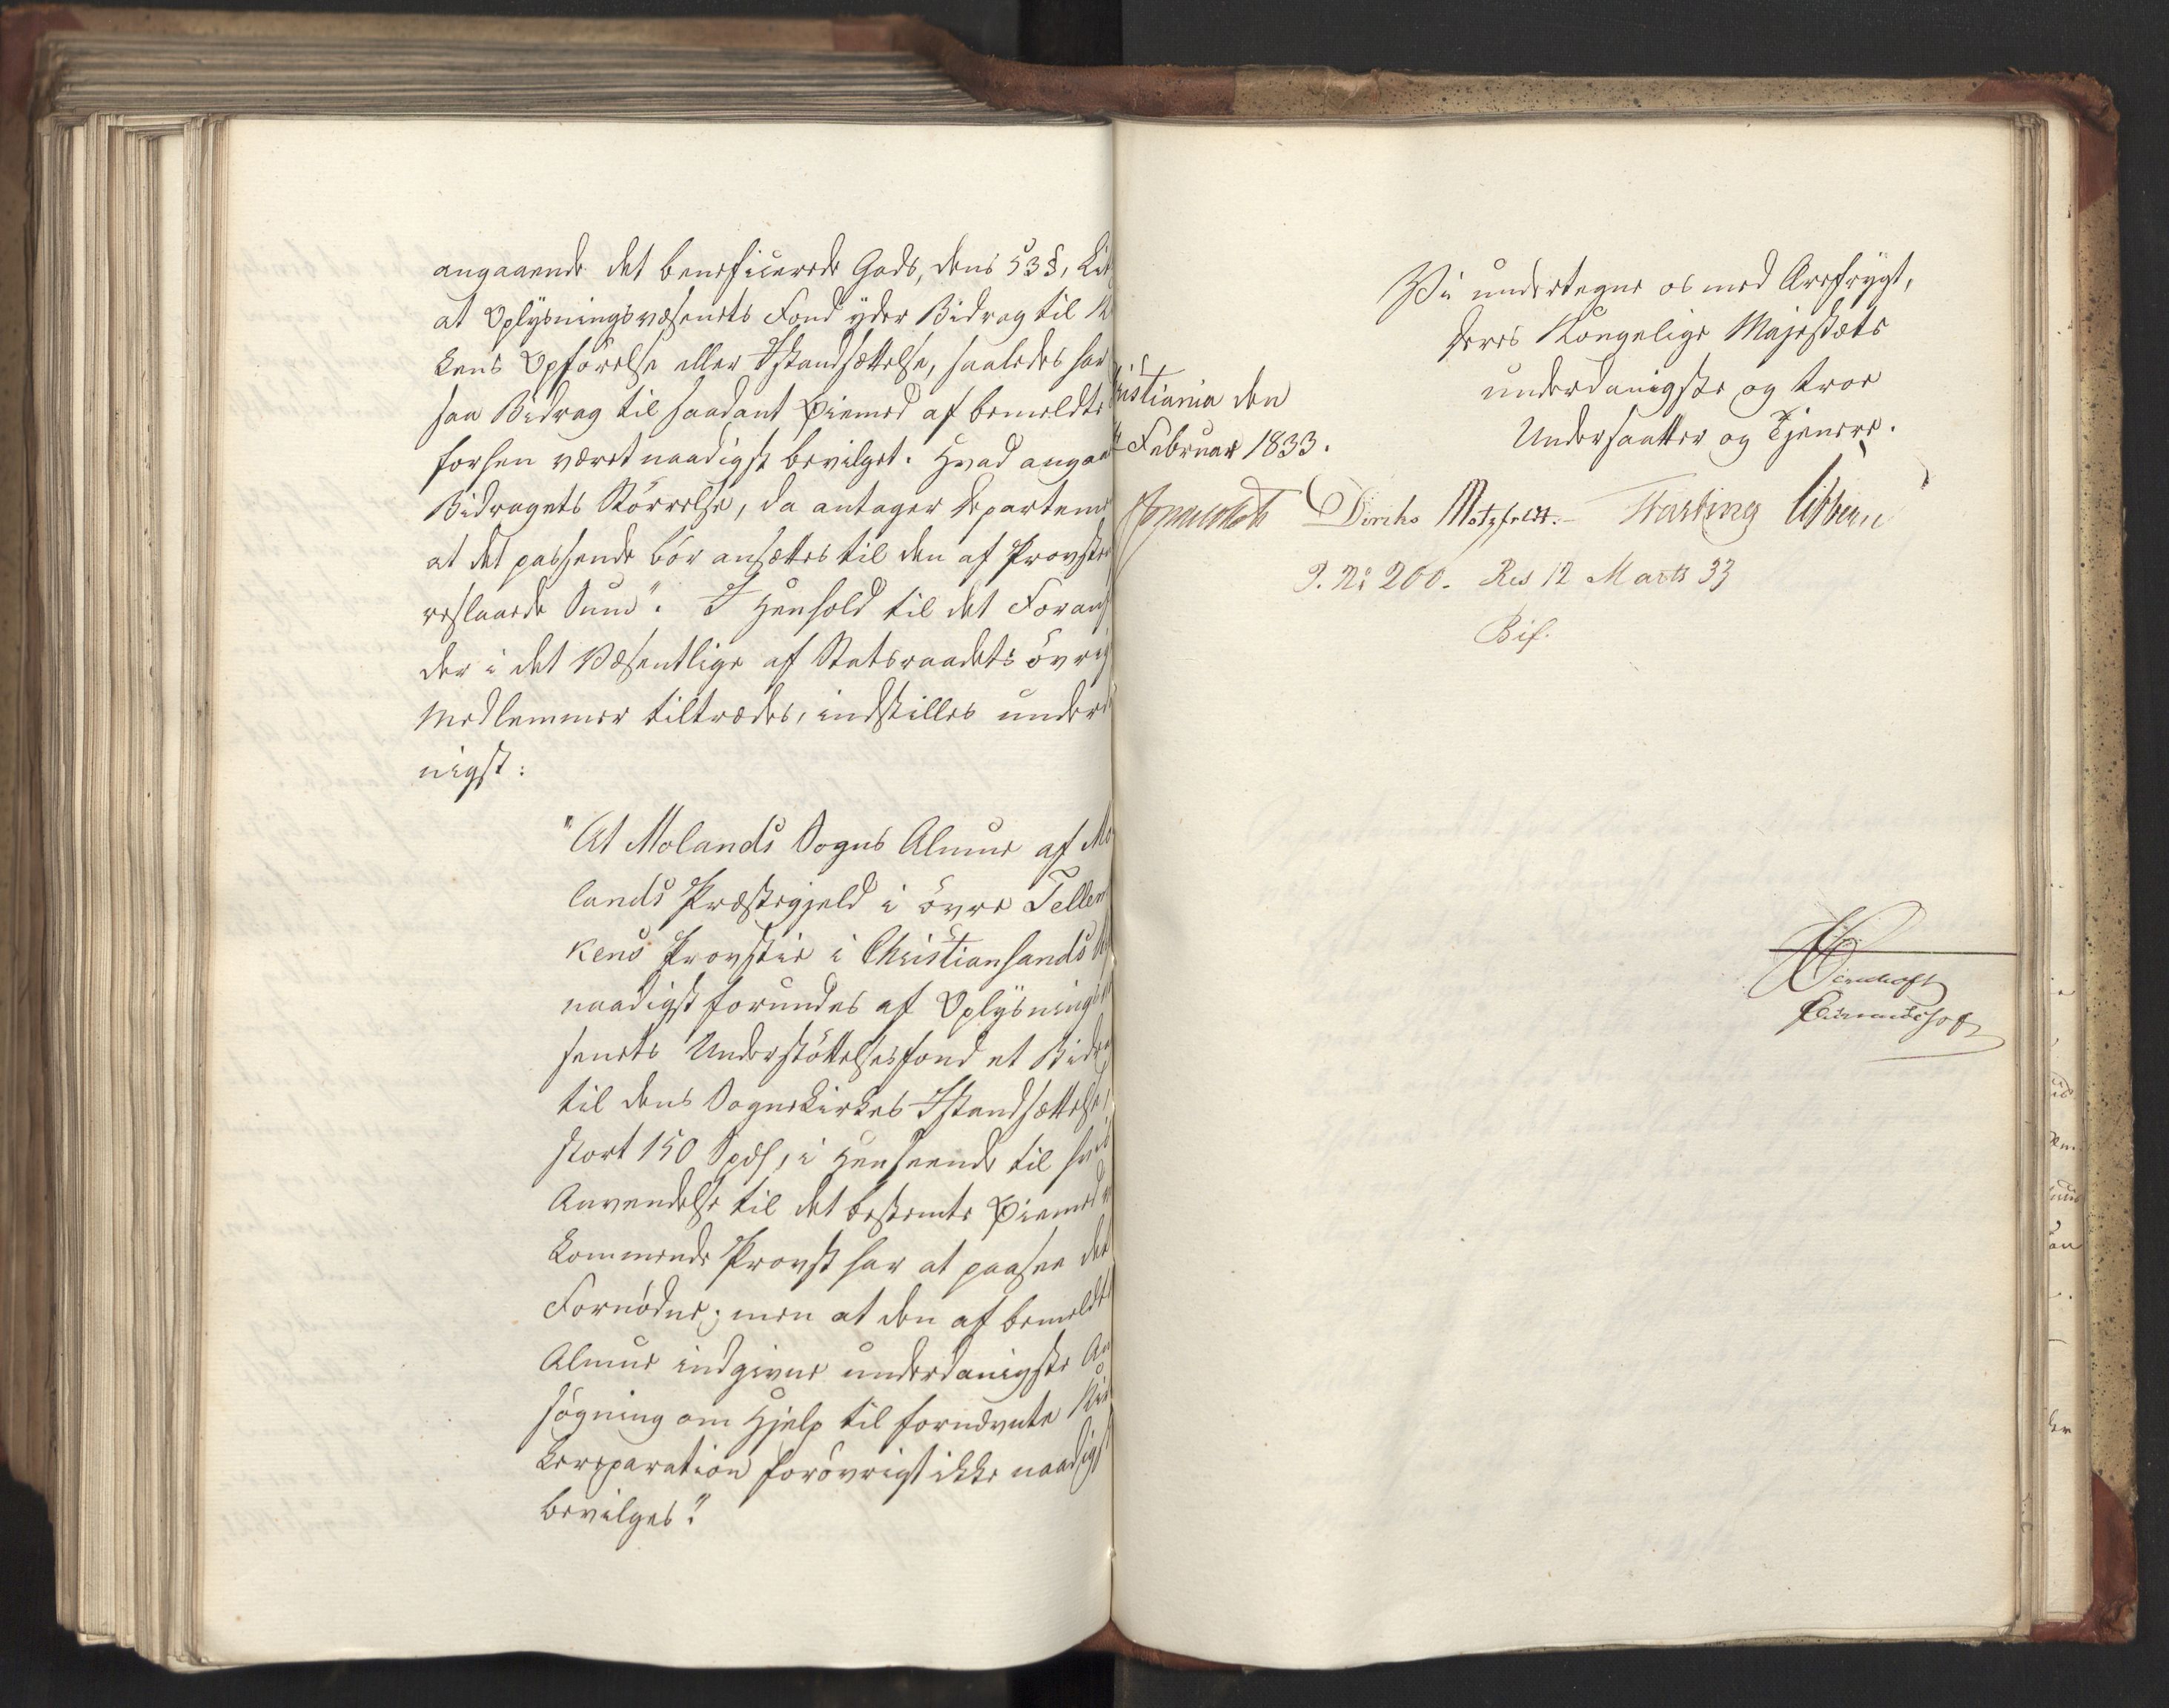 angaaende det beneficerede Gods, dens 53 §, Lit
at Oplysningsvæsenets Fond yder Bidrag til K
kens Opförelse eller Istandsættelse, saaledes har
saa Bidrag til saadant Øiemed af bemeldte
forhen været naadigst bevilget. Hvad angaa
Bidragets Störrelse, da antager Departeme
at det passende bör ansættes til den af Provste
reslaaede Sum". I Henhold til det Foranf
der i det Væsentlige af Statsraadets övrig
Medlemmer tiltrædes, indstilles underd
nigst:
"At Molands Sogns Almue af Mo
lands Præstegjeld i övre Tellem
kens Provstie i Christiansands
naadigst forundes af Oplysnings
senets Understöttelsesfond et Bidra
til dens Sognekirkes Istandsættelse,
stort 150 Spd, i Henseende til hvis
Anvendelse til det bestemte Øiemed
kommende Provst har at paasee det
Fornödne; men at den af bemeldte
Almue indgivne underdanigste An
sögning om Hjelp til fornævnte Kir
kereparation forövrigt ikke naadigst
bevilges".
Vi undertegne os med Ærefrygt,
Deres Kongelige Majestæts
underdanigste og troe
Undersaatter og Tjenere.
ristiania den
Februar 1833.
Diriks Motzfeldt. Fasting Vibe
J. No 200. Res 12 Marts 33
Bif.